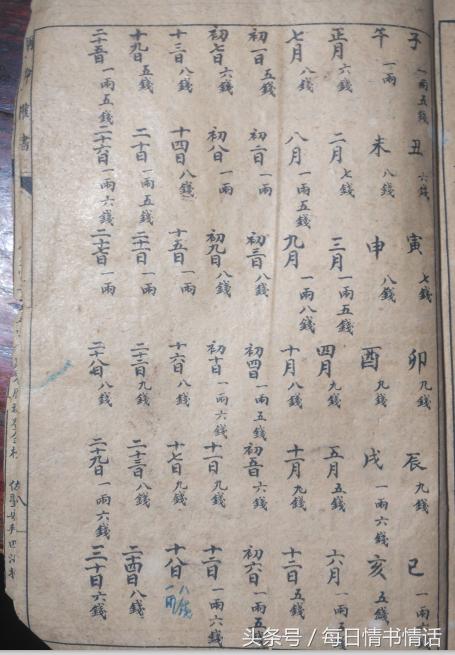 子 一兩五錢 丑 六錢 寅 七錢 卯 九錢 辰 九錢 巳 一兩
午 一兩 未 八錢 申 八錢 酉 九錢 戌 一兩六錢 亥 五錢
正月 六錢 二月 七錢 三月 一兩五錢 四月 九錢 五月 五錢 六月 一兩五
七月 八錢 八月 一兩五錢 九月 一兩八錢 十月 八錢 十一月 九錢 十二月 五錢
初一日 五錢 初二日 一兩 初三日 八錢 初四日 一兩五錢 初五日 六錢 初六日 一兩五
初七日 六錢 初八 一兩 初九日 八錢 初十日 一兩六錢 十一日 九錢 十二日 一兩六錢
十三日 八錢 十四日 八錢 十五日 一兩 十六日 八錢 十七日 九錢 十八日 八錢 一兩
十九日 五錢 二十日 一兩五錢 二十一日 一兩 二十二日 九錢 二十三日 八錢 二十四日 八錢
二十五日 一兩五錢 二十六日 一兩六錢 二十七日 一兩 二十八日 八錢 二十九日 一兩六錢 三十日 六錢
头条号 / 每日情书情话